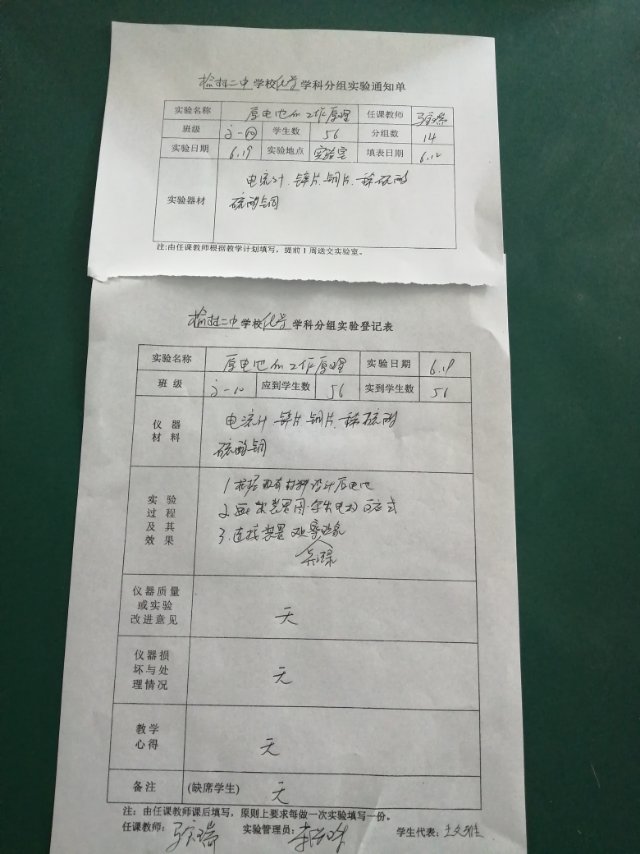 榆树二中学校化学学科分组实验通知单
实验名称 原电池的工作原理 任课教师
班级 学生数 56 分组数 14
实验日期 6.19 实验地点 实验室 填表日期 6.12
实验器材 电流计.锌片.铜片.稀硫酸
硫酸铜
注:由任课教师根据教学计划填写，提前1周送交实验室。
榆树二中学校化学学科分组实验登记表
实验名称 原电池的工作原理 实验日期 6.19
班级 应到学生数 56 实到学生数 56
仪器材料 电流计 锌片 铜片 稀硫酸
硫酸铜
实验过程及其效果 1.根据现有材料设计原电池
2.画出装置图.写出电极方程式
3.连接装置 观察现象
仪器质量或实验改进意见 无
仪器损坏与处理情况 无
教学心得 无
备注 (缺席学生) 无
注：由任课教师课后填写，原则上要求每做一次实验填写一份。
任课教师: 实验管理员: 学生代表: